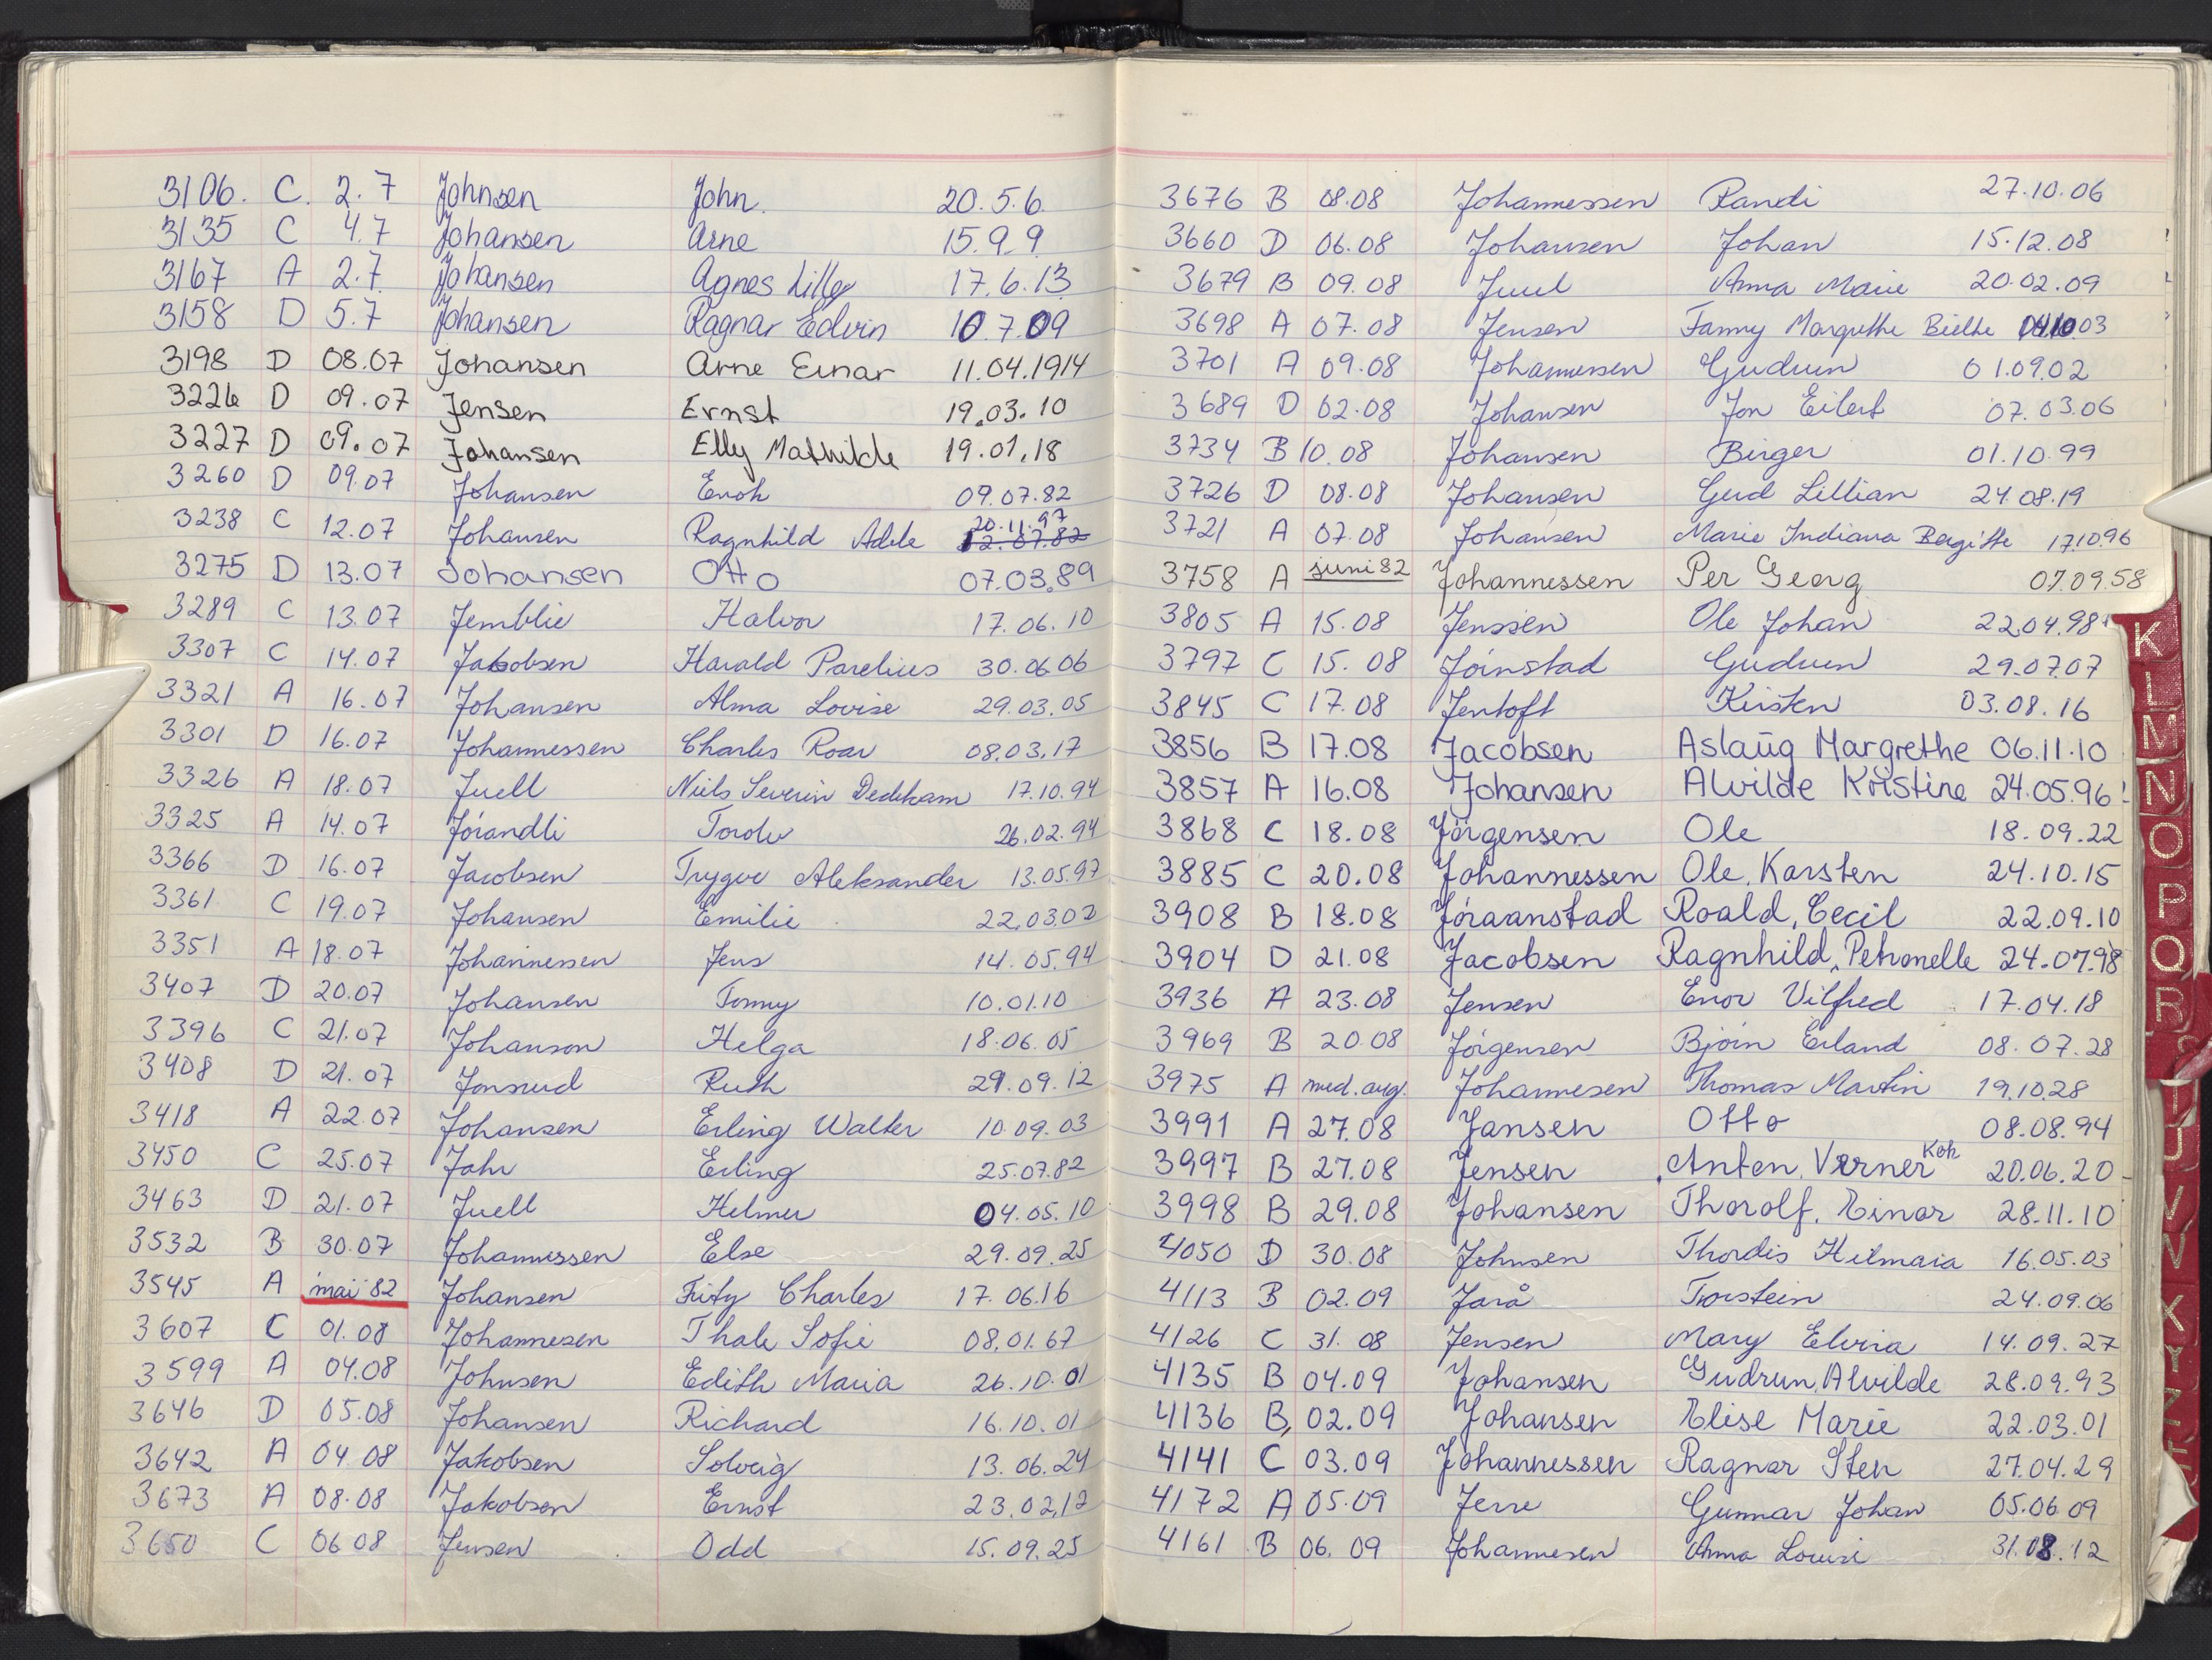 3106. C. 2.7 Johnsen John. 20.5.6.
3135 C 4.7 Johansen Arne 15.9.9
3167 A 2.7. Johansen Agnes Lilly 17.6.13
3158 D 5.7 Johansen Ragnar Edvin 10.7.09
3198 D 08.07 Johansen Arne Einar 11.04.1914
3226 D 09.07 Jensen Ernst 19.03.10
3227 D 09.07 Johansen Elly Mathilde 19.01.18
3260 D 09.07 Johansen Enok 09.07.82
3238 C 12.07 Johansen Ragnhild Adele 20.11.97 12.07.82
3275 D 13.07 Johansen Otto 07.03.89
3289 C 13.07 Jemblie Halvor 17.06.10
3307 C 14.07 Jakobsen Harald Parelius 30.06.06
3321 A 16.07 Johansen Alma Lovise 29.03.05
3301 D 16.07 Johannessen Charles Roar 08.03.17
3326 A 18.07 Juell Niels Severin Dedekam 17.10.94
3325 A 14.07 Jórandli Torolv 26.02.94
3366 D 16.07 Jacobsen Trygve Aleksander 13.05.97
3361 C 19.07 Johansen Emilie 22.03.02
3351 A 18.07 Johannessen Jens 14.05.94
3407 D 20.07 Johansen Tonny 10.01.10
3396 C 21.07 Johanson Helga 18.06.05
3408 D 21.07 Jonsrud Ruth 29.09.12
3418 A 22.07 Johansen Erling Walter 10.09.03
3450 C 25.07 Jahr Erling 25.07.82
3463 D 21.07 Juell Helmer 04.05.10
3532 B 30.07 Johannessen Else 29.09.25
3545 A mai 82 Johansen Fritz Charles 17.06.16
3607 C 01.08 Johannesen Thale Sofie 08.01.67
3599 A 04.08 Johnsen Edith Maria 26.10.01
3646 D 05.08 Johansen Richard 16.10.01
3642 A 04.08 Jakobsen Solveig 13.06.24
3673 A 08.08 Jakobsen Ernst 23.02.12
3650 C 06.08 Jensen Odd 15.09.25
3676 B 08.08 Johannessen Randi 27.10.06
3660 D 06.08 Johansen Johan 15.12.08
3679 B 09.08 Juul Anna Marie 20.02.09
3698 A 07.08 Jensen Fanny Margrethe 04.10.03
3701 A 09.08 Johannessen Gudrun 01.09.02
3689 D 02.08 Johansen Jon Eilert 07.03.06
3734 B 10.08 Johansen Birger 01.10.99
3726 D 08.08 Johansen Gerd Lillian 24.08.19
3721 A 07.08 Johansen Marie Indiana Bergitte 17.10.96
3758 A juni 82 Johannessen Per Georg 07.09.58
3805 A 15.08 Jenssen Ole Johan 22.04.98
3797 C 15.08 Jóinstad Gudrun 29.07.07
3845 C 17.08 Jentoft Kirsten 03.08.16
3856 B 17.08 Jacobsen Aslaug Margrethe 06.11.10
3857 A 16.08 Johansen Alvilde Kristine 24.05.96
3868 C 18.08 Jørgensen Ole 18.09.22
3885 C 20.08 Johannessen Ole, Karsten 24.10.15
3908 B 18.08 Jóraanstad Roald, Cecil 22.09.10
3904 D 21.08 Jacobsen Ragnhild, Petronelle 24.07.98
3936 A 23.08 Jensen Enor Vilfred 17.04.18
3969 B 20.08 Jórgensen Bjórn Erland 08.07.28
3975 A med. aug. Johannesen Thomas Martin 19.10.28
3991 A 27.08 Jansen Otto 08.08.94
3997 B 27.08 Jensen Anton, Verner Koh 20.06.20
3998 B 29.08 Johansen Thorolf, Einar 28.11.10
4050 D 30.08 Johnsen Thordis Hilmaria 16.05.03
4113 B 02.09 Jarå Torstein 24.09.06
4126 C 31.08 Jensen Mary Elvira 14.09.27
4135 B 04.09 Johansen Gudrun, Alvilde 28.09.93
4136 B, 02.09 Johansen Elise Marie 22.03.01
4141 C 03.09 Johannessen Ragnar Sten 27.04.29
4172 A 05.09 Jerre Gunnar Johan 05.06.09
4161 B 06.09 Johannesen Anna Lovise 31.08.12
K
L
M
N
O
P
Q
R
T
U
V
X
Y